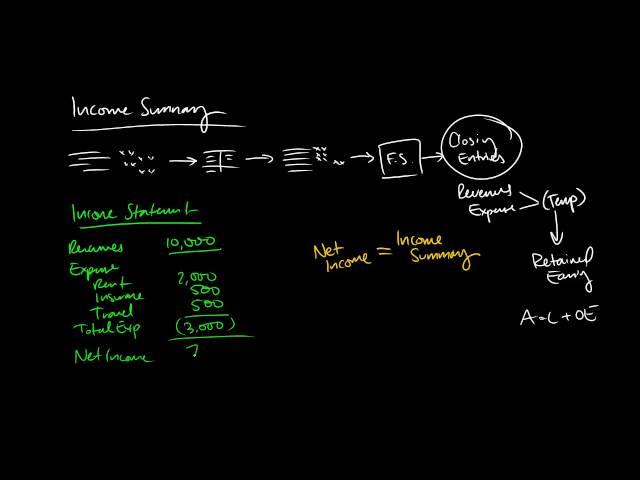 Income Summary
F.S.
Closing
Entries
Revenues
Expense
(Temp)
Retained
A=L+OE
Net
Income
=
Income
Summary
Income Statement
Revenues 10,000
Expense
Rent 2,000
Insurance 500
Travel 500
Total Exp (3,000)
Net Income 7